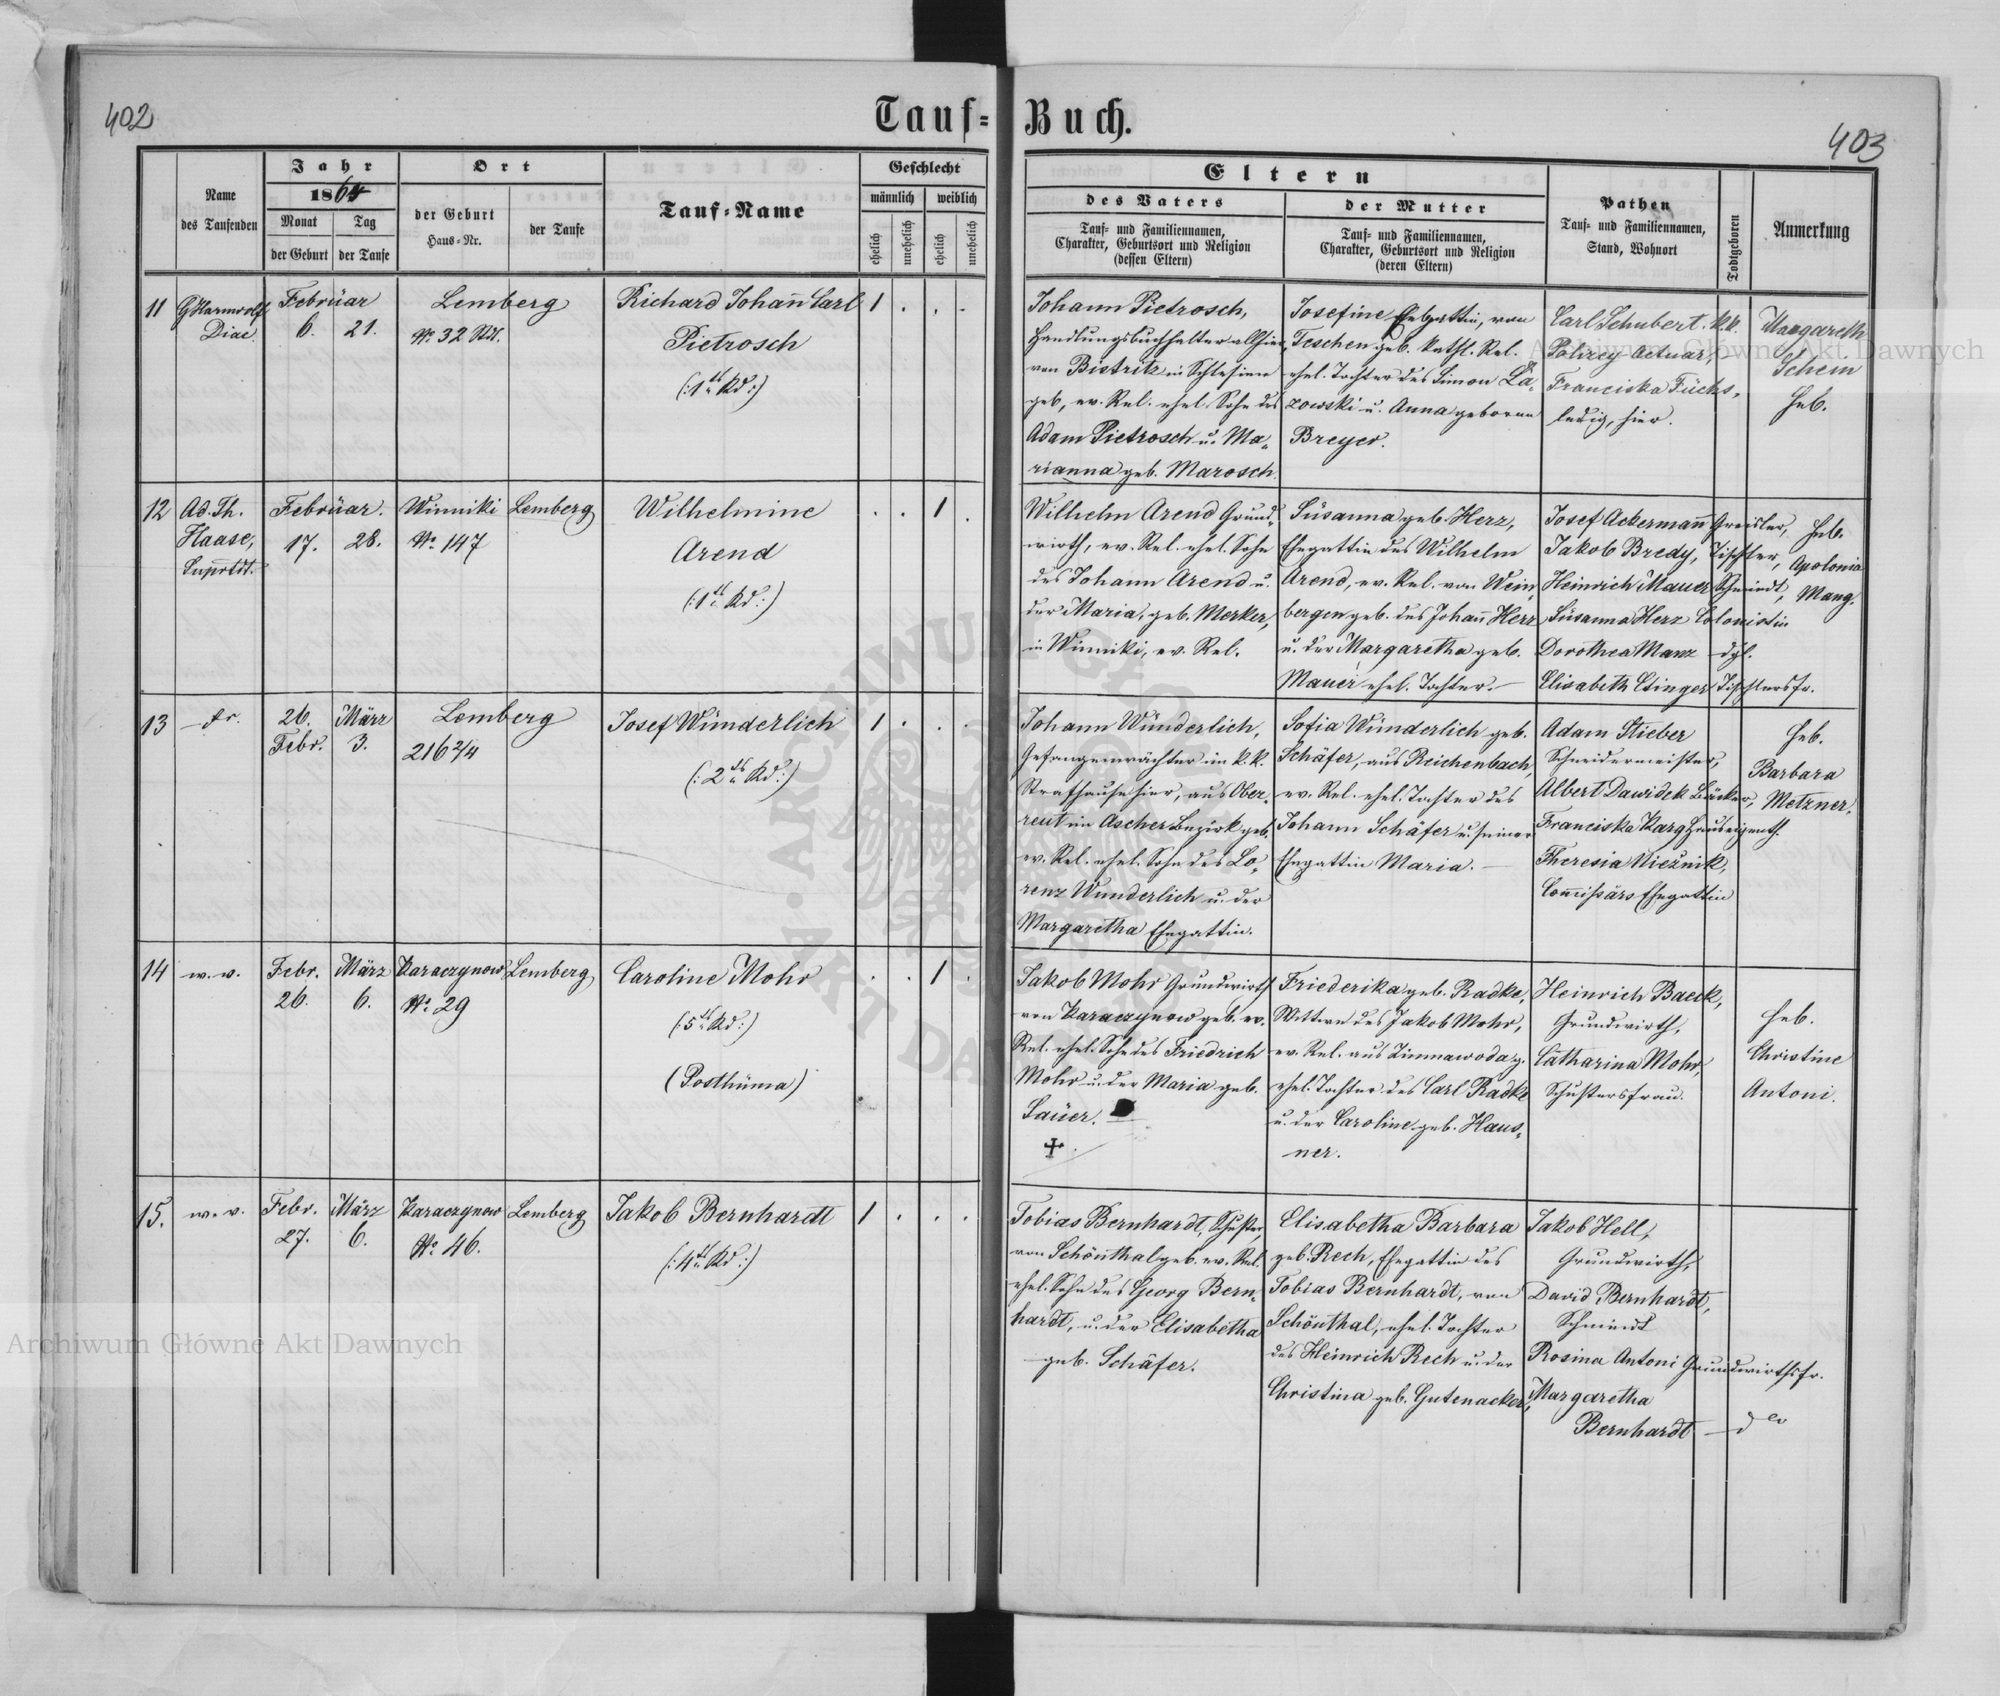 402
403
Tauf-Buch.
Name
des Taufenden
Jahr
1864
Monat
der Geburt
Tag
der Taufe
Ort
der Geburt
Haus-Nr.
der Taufe
Tauf-Name
Geschlecht
männlich
weiblich
ehelich
unehelich
ehelich
unehelich
Eltern
des Vaters
Tauf- und Familiennamen,
Charakter, Geburtsort und Religion
(dessen Eltern)
der Mutter
Tauf- und Familiennamen,
Charakter, Geburtsort und Religion
(deren Eltern)
Pathen
Tauf- und Familiennamen,
Stand, Wohnort
Todtgeboren
Anmerkung
11
Diac.
Februar
6. 21.
Lemberg
No. 32
Richard Johann Carl
Pietrosch
(:1tes Kd:)
1 . . .
Johann Pietrosch,
Handlungsbuchhalter allhier,
von Bistritz in Schlesien
geb, ev. Rel. ehel. Sohn des
Adam Pietrosch u. Ma-
rianna geb. Marosch.
Josefine Ehegattin, von
Teschen geb. kathl. Rel.
ehel. Tochter des Simon La-
zowski u. Anna geborene
Breyer.
Carl Schubert. k.k.
Polizey Actuar,
Franciska Fuchs,
ledig, hier.
Margareth
Schem
Heb.
12
Ad. Th.
Haase,
Suprtdt.
Februar.
17. 28.
Winniki
No. 147
Lemberg
Wilhelmine
Arend
(:1tes Kd:)
. . 1 .
Wilhelm Arend Grund-
wirth, ev. Rel. ehel. Sohn
des Johann Arend u.
der Maria, geb. Merker,
in Winniki, ev. Rel.
Susanna geb. Herz,
Ehegattin des Wilhelm
Arend, ev. Rel. von Wein-
bergen geb. des Johann Herz
u. der Margaretha geb.
Mauer ehel. Tochter.
Josef Ackermann Greisler,
Jakob Bredy, Tischler,
Heinrich Mauer Schmiedt,
Susanna Herz Colonistin
Dorothea Manz dgl.
Elisabeth Etinger Tischlersfr.
Heb.
Apolonia
Mang.
13
26. März
Febr. 3.
Lemberg
216 2/4
Josef Wunderlich
(:2tes Kd:)
1 . . .
Johann Wunderlich,
Gefangenwächter im k.k.
Strafhause hier, aus Ober-
reut im Ascher Bezirk geb.
ev. Rel. ehel. Sohn des Lo-
renz Wunderlich u. der
Margaretha Ehegattin.
Sofia Wunderlich geb.
Schäfer, aus Reichenbach,
ev. Rel. ehel. Tochter des
Johann Schäfer u. seiner
Ehegattin Maria.
Adam Stieber
Schneidermeister,
Albert Dawidek Bäcker,
Franciska Karg Hauseigenth.
Theresia Wieźnik,
Commissärs Ehegattin
Heb.
Barbara
Metzner.
14
w. v.
Febr. März
26. 6.
Karaczynow
No. 29
Lemberg
Caroline Mohr
(:5tes Kd:)
(Posthuma)
. . 1 .
Jakob Mohr Grundwirth
von Karaczynow geb. ev.
Rel. ehel. Sohn des Friedrich
Mohr u. der Maria geb.
Sauer.
Friederika geb. Radke,
Wittwe des Jakob Mohr,
ev. Rel. aus Zimnawoda g.
ehel. Tochter des Carl Radke
u. der Caroline geb. Haus-
ner.
Heinrich Baeck,
Grundwirth,
Catharina Mohr,
Schustersfrau.
Heb.
Christine
Antoni.
15.
w. v.
Febr. März
27. 6.
Karaczynow
No. 46.
Lemberg
Jakob Bernhardt
(:4tes Kd:)
1 . . .
Tobias Bernhardt, Schuster,
von Schönthal geb. ev. Rel.
ehel. Sohn des Georg Bern-
hardt, u. der Elisabetha
geb. Schäfer.
Elisabetha Barbara
geb. Rech, Ehegattin des
Tobias Bernhardt, von
Schönthal, ehel. Tochter
des Heinrich Rech u. der
Christina geb. Gutenacker,
Jakob Hell,
Grundwirth,
David Bernhardt,
Schmiedt
Rosina Antoni Grundwirthsfr.
Margaretha
Bernhardt dto
Archiwum Główne Akt Dawnych
Archiwum Główne Akt Dawnych